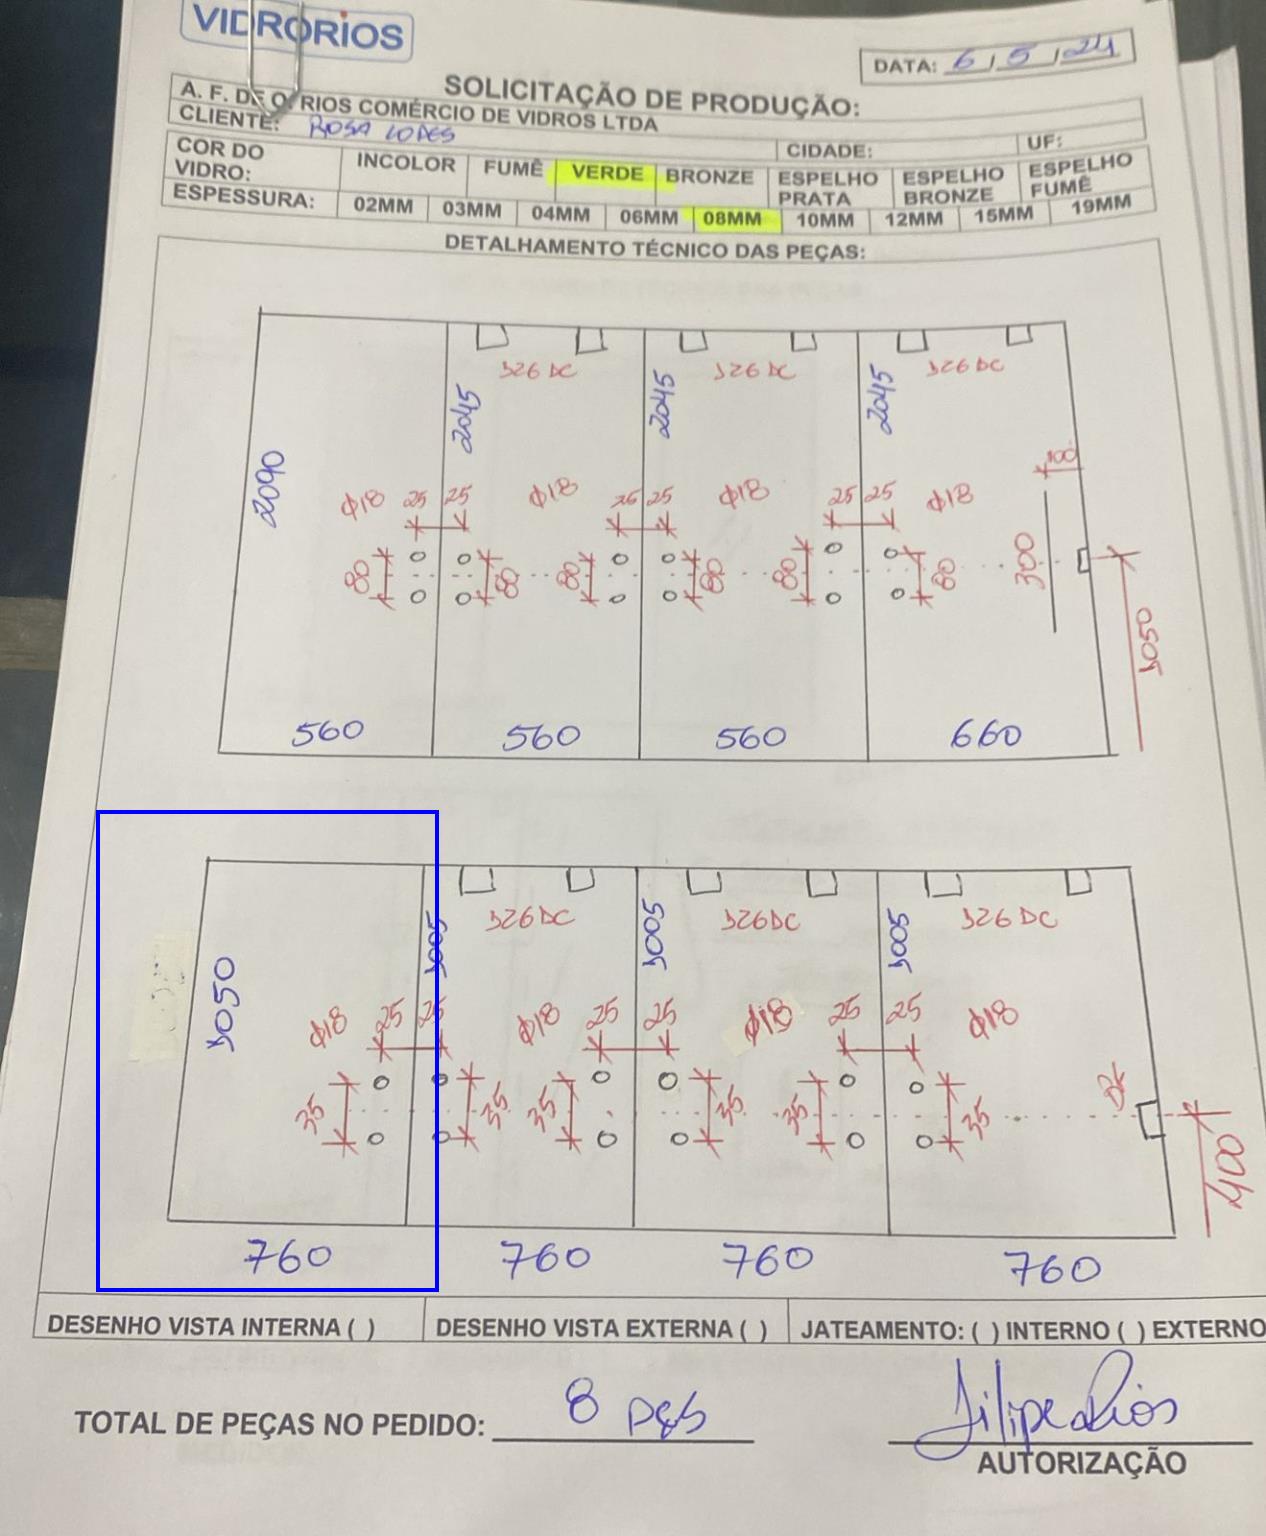 VIDRORIOS
DATA: 6/5/24
SOLICITAÇÃO DE PRODUÇÃO:
A. F. DE O. RIOS COMÉRCIO DE VIDROS LTDA
CLIENTE: ROSA LOPES
CIDADE: UF:
COR DO VIDRO: INCOLOR FUMÊ VERDE BRONZE ESPELHO PRATA ESPELHO BRONZE ESPELHO FUMÊ
ESPESSURA: 02MM 03MM 04MM 06MM 08MM 10MM 12MM 15MM 19MM
DETALHAMENTO TÉCNICO DAS PEÇAS:
326 DC 326 DC 326 DC
2090 2045 2045 2045
100
Φ18 25 25 Φ18 25 25 Φ18 25 25 Φ18
80 80 80 80 80 80 300
1050
560 560 560 660
326 DC 326 DC 326 DC
1050 1005 1005 1005
Φ18 25 25 Φ18 25 25 Φ18 25 25 Φ18
35 35 35 35 35 35
400
760 760 760 760
DESENHO VISTA INTERNA ( ) DESENHO VISTA EXTERNA ( ) JATEAMENTO: ( ) INTERNO ( ) EXTERNO
TOTAL DE PEÇAS NO PEDIDO: 8 pçs
Filipe Rios
AUTORIZAÇÃO